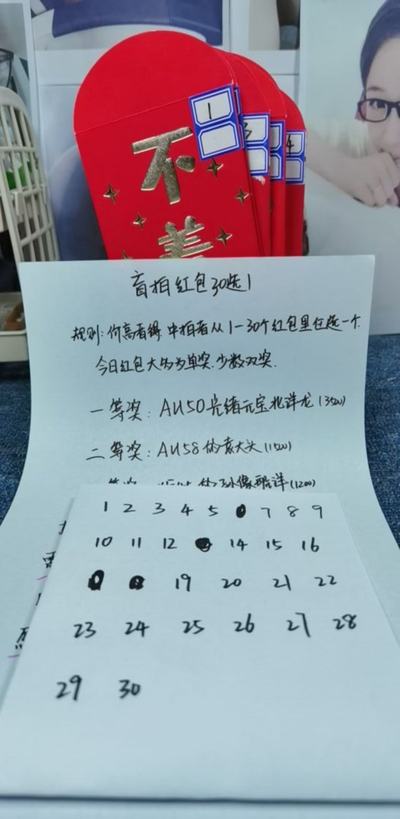 1
3
4
不
善
盲拍红包30选1
规则:价高者得.中拍者从1-30个红包里任选一个.
今日红包大多为单奖.少数双奖.
一等奖: AU50光绪元宝北洋龙(3500)
二等奖: AU58 大头(1500)
像 洋(1200)
1 2 3 4 5 7 8 9
10 11 12 14 15 16
19 20 21 22
23 24 25 26 27 28
29 30